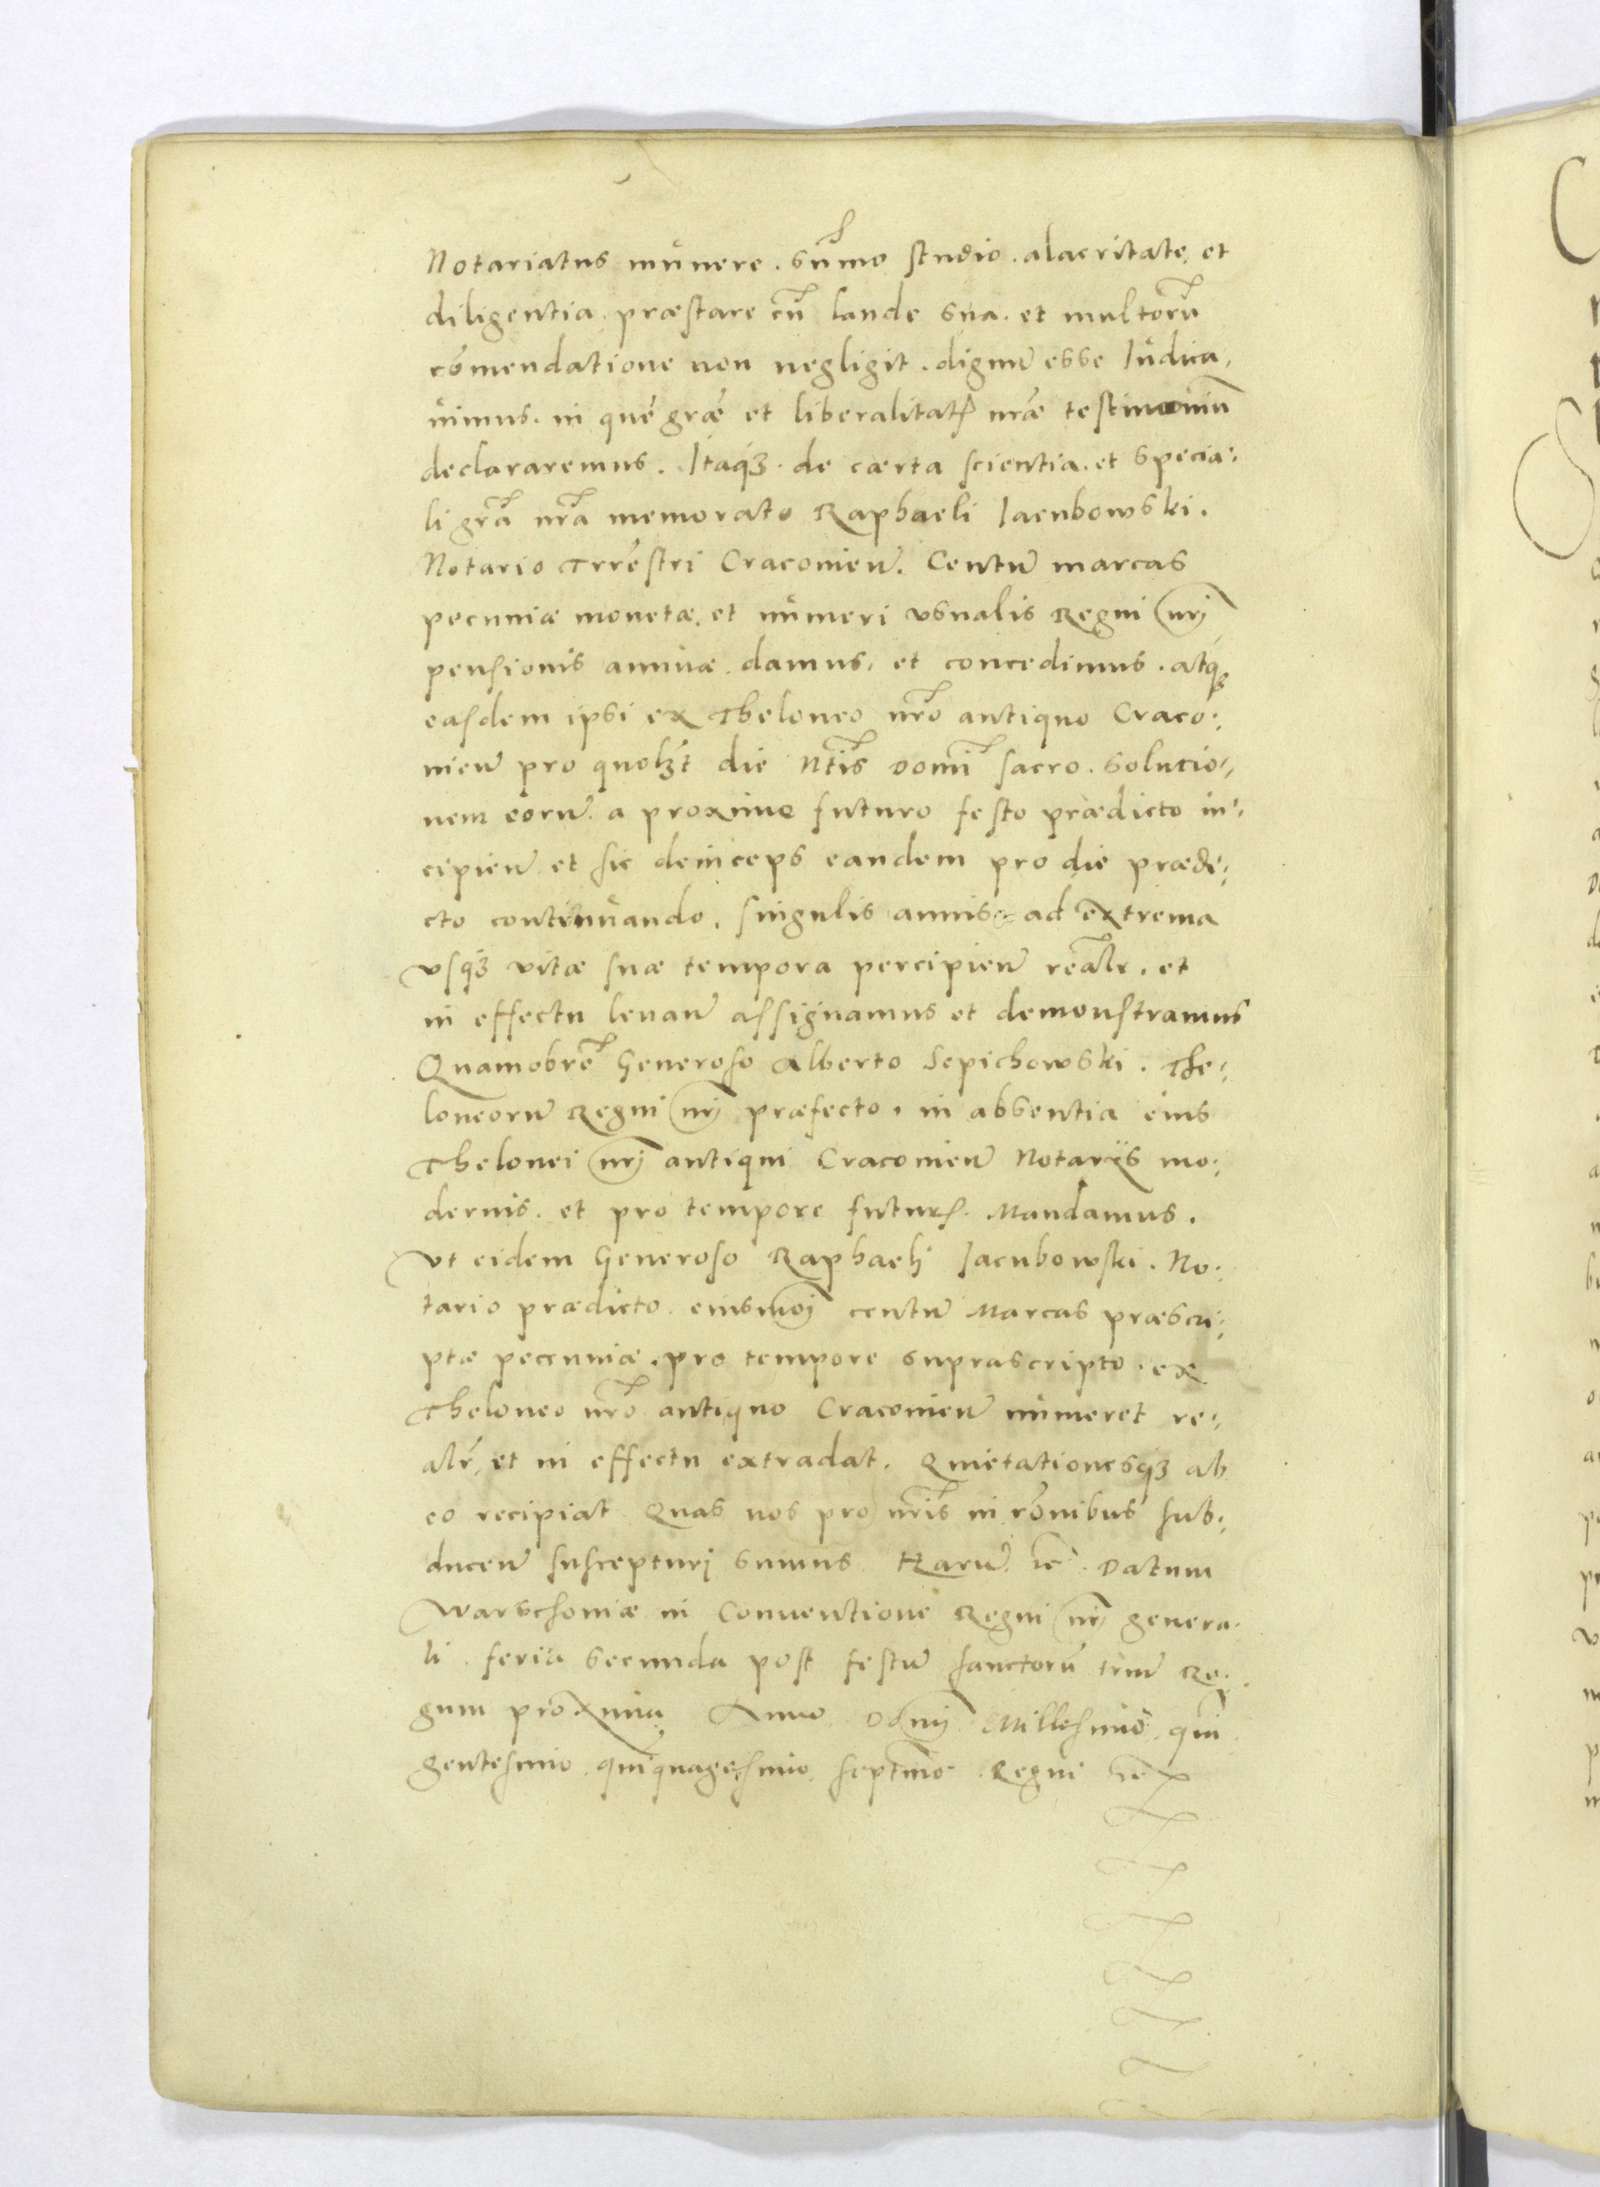 Notariatus munere. sum̃o studio. alacritate, et
diligentia. præstare cũ laude sua. et multorũ
cõmendatione non negligit. dignũ esse Iudica,
uimus. in quẽ grãe et liberalitatꝭ nr̃æ testimoniũ
declararemus. Itaqꝫ de cærta scientia. et specia:
li grã nr̃a memorato Raphaeli Iacubowski.
Notario Trr̃estri Cracovieñ. Centũ marcas
pecuniæ monetæ. et numeri vsualis Regni nr̃j
pensionis annuæ damus. et concedimus. atqꝫ
easdem ipsi ex Theloneo nr̃o antiquo Craco:
uieñ pro quolꝫt die Ntĩs Domĩ sacro. Solucio:,
nem eorũ a proxime futuro festo prædicto in:
cipieñ et sic deinceps eandem pro die prædi:
cto continuando. singulis annis ad extrema
vsqꝫ vitæ suæ tempora percipieñ realr̃. et
in effectu leuañ assignamus et demonstramus
Quamobrẽ Generoso Alberto Sepichowski. The:
loneorũ Regni nr̃j præfecto. in absentia eius
Thelonei nr̃j antiqui Cracovieñ Notarijs mo:
dernis. et pro tempore futurꝭ. Mandamus.
vt eidem Generoso Raphaeli Iacubowski. No:
tario prædicto. eiusmõj centũ Marcas præscri:
ptæ pecuniæ. pro tempore suprascripto. ex
Theloneo nr̃o antiquo Cracovieñ numeret re:
alr̃, et in effectu extradat. Quietationesqꝫ ab
eo recipiat Quas nos pro nr̃is in rõnibus sub:
duceñ suscepturj sumus Harũ &c. Datum
Warschoviæ in Conuentione Regni nr̃j genera.
li. feria secunda post festũ sanctorũ triũ Re:
gum proxima Anno Dõnj Millesimo quĩ
gentesimo quĩquagesimo septĩmo Regni &c